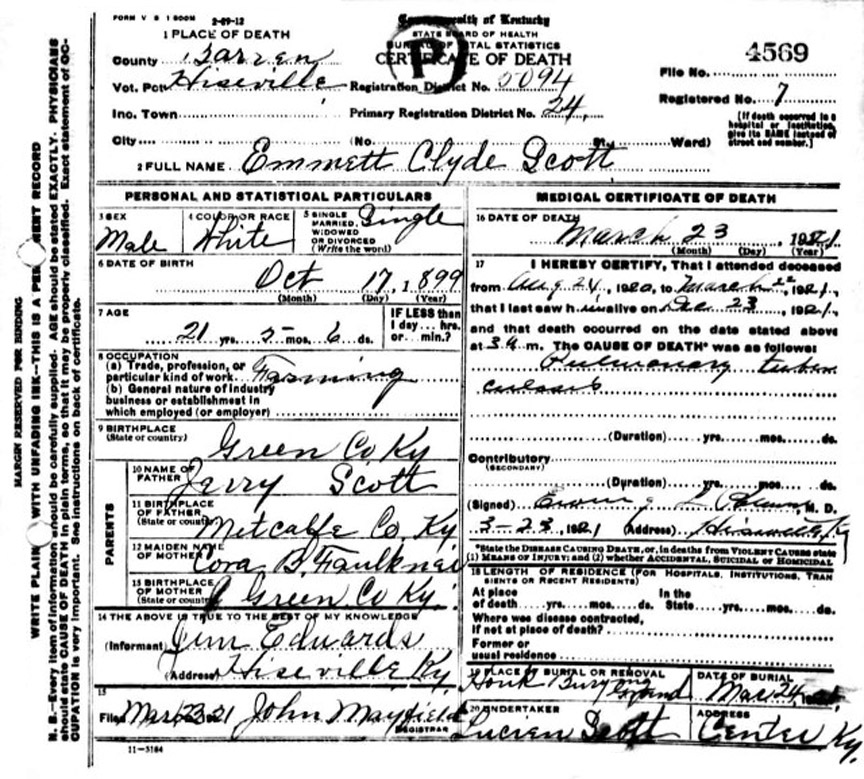 FORM V S 1 500M 2-29-12
Commonwealth of Kentucky
STATE BOARD OF HEALTH
BUREAU OF VITAL STATISTICS
CERTIFICATE OF DEATH
P
1 PLACE OF DEATH
County Barren
Vot. Pct Hiseville
Inc. Town
City (No. St. Ward)
Registration District No. 0094
Primary Registration District No. 24
File No. 4569
Registered No. 7
[If death occurred in a hospital or institution, give its NAME instead of street and number.]
2 FULL NAME Emmett Clyde Scott
PERSONAL AND STATISTICAL PARTICULARS
3 SEX Male
4 COLOR OR RACE White
5 SINGLE MARRIED, WIDOWED OR DIVORCED (Write the word) Single
6 DATE OF BIRTH Oct 17, 1899
(Month) (Day) (Year)
7 AGE
21 yrs. 5 mos. 6 ds.
IF LESS than 1 day... hrs. or... min.?
8 OCCUPATION
(a) Trade, profession, or particular kind of work Farming
(b) General nature of industry business or establishment in which employed (or employer)
9 BIRTHPLACE (State or country) Green Co Ky
PARENTS
10 NAME OF FATHER Jerry Scott
11 BIRTHPLACE OF FATHER (State or country) Metcalfe Co. Ky
12 MAIDEN NAME OF MOTHER Cora B. Faulkner
13 BIRTHPLACE OF MOTHER (State or country) Green Co Ky.
14 THE ABOVE IS TRUE TO THE BEST OF MY KNOWLEDGE
(Informant) Jim Edwards
(Address) Hiseville Ky.
15
Filed Mar 23 1921 John Mayfield
REGISTRAR
11-3184
MEDICAL CERTIFICATE OF DEATH
16 DATE OF DEATH March 23 1921
(Month) (Day) (Year)
17 I HEREBY CERTIFY, That I attended deceased
from Aug 24, 1920, to March 22, 1921,
that I last saw him alive on Dec 23, 1921,
and that death occurred on the date stated above
at m. The CAUSE OF DEATH* was as follows:
Pulmonary tuber
culosis
(Duration) yrs. mos. ds.
Contributory
(SECONDARY)
(Duration) yrs. mos. ds.
(Signed) M. D.
3-23, 1921 (Address) Hiseville Ky
*State the DISEASE CAUSING DEATH, or, in deaths from VIOLENT CAUSES state (1) MEANS OF INJURY; and (2) whether ACCIDENTAL, SUICIDAL or HOMICIDAL
18 LENGTH OF RESIDENCE (FOR HOSPITALS, INSTITUTIONS, TRANSIENTS OR RECENT RESIDENTS)
At place of death yrs. mos. ds. In the State yrs. mos. ds.
Where was disease contracted, if not at place of death?
Former or usual residence
19 PLACE OF BURIAL OR REMOVAL Houk Burying Ground
DATE OF BURIAL Mar 24, 1921
20 UNDERTAKER Lucien Scott
ADDRESS Center Ky.
MARGIN RESERVED FOR BINDING
WRITE PLAINLY WITH UNFADING INK—THIS IS A PERMANENT RECORD
N. B.—Every item of information should be carefully supplied. AGE should be stated EXACTLY. PHYSICIANS
should state CAUSE OF DEATH in plain terms, so that it may be properly classified. Exact statement of OC-
CUPATION is very important. See instructions on back of certificate.